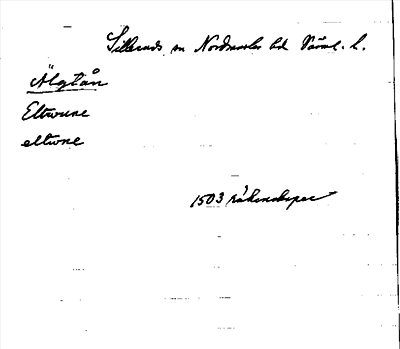 Sillerud sn Nordmarks hd Värml. l.
Älgtån
Eltwene
eltwne
1503 räkenskaper